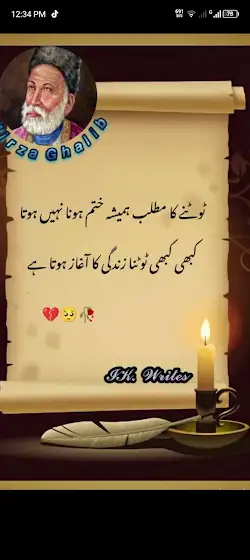 12:34 PM
691 B/S
78
Mirza Ghalib
ٹوٹنے کا مطلب ہمیشہ ختم ہونا نہیں ہوتا
کبھی کبھی ٹوٹنا زندگی کا آغاز ہوتا ہے
💔🥺🥀
IK. Writes